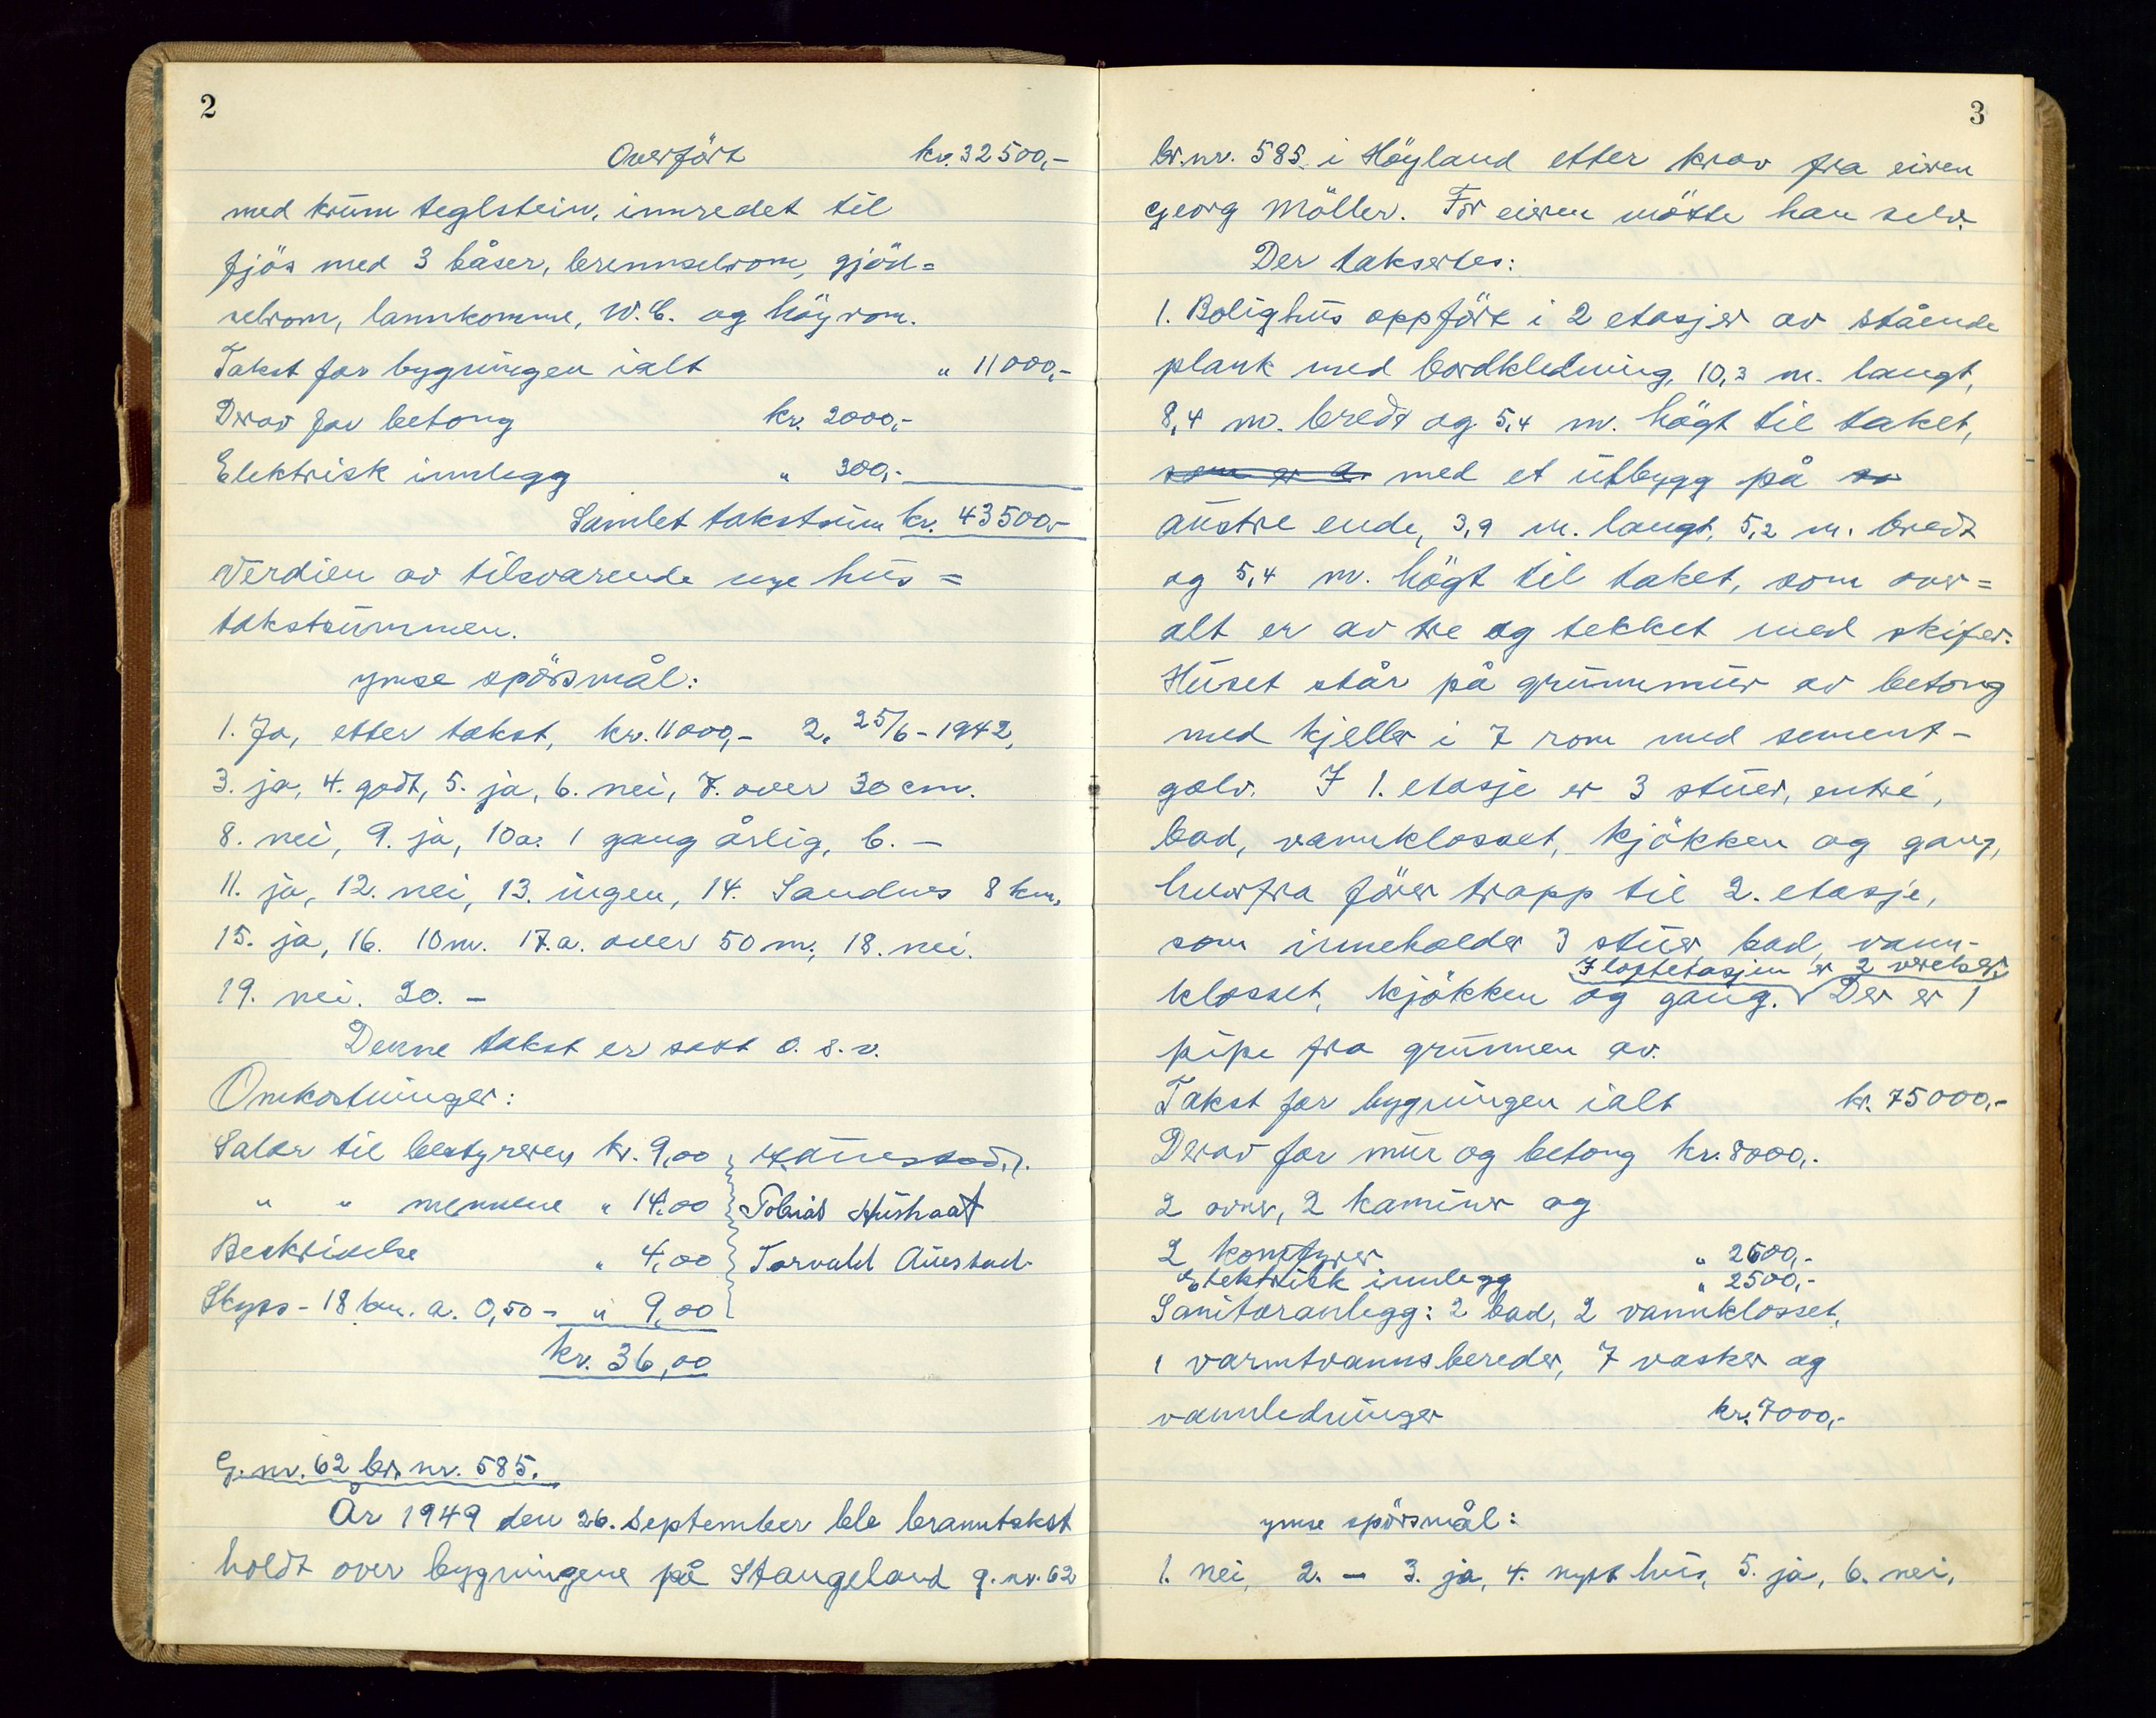 2
Overfört kr. 32500,-
med krum teglstein, innredet til
fjös med 3 båser, brennselrom, gjöd=
selrom, lannkomme, W.C. og höyrom.
Takst for bygningen ialt " 11000,-
Derav for betong kr. 2000,-
Elektrisk innlegg " 300,-
Samlet takstsum kr. 43500,-
Verdien av tilsvarende nye hus =
takstsummen.
ymse spörsmål:
1. Ja, etter takst, kr. 11000,- 2. 25/6-1942,
3. ja, 4. godt, 5. ja, 6. nei, 7. over 30 cm.
8. nei, 9. ja, 10a: 1 gang årlig, b. -
11. ja, 12. nei, 13. ingen, 14. Sandnes 8 km,
15. ja, 16. 10 m. 17.a. over 50 m; 18. nei.
19. nei. 20. -
Denne takst er satt o.s.v.
Omkostninger:
Salær til bestyreren kr. 9,00
" " mennene " 14,00 Tobias Hushaat
Beskrivelse " 4,00 Torvald Austad.
Skyss - 18 km. a. 0,50 - " 9,00
kr. 36,00
G. nr. 62 br. nr. 585.
År 1949 den 26. september ble branntakst
holdt over bygningene på Stangeland g. nr. 62
3
br. nr. 585 i Höyland etter krav fra eieren
Georg Möller. For eieren mötte han selv.
Der takseres:
1. Bolighus oppfört i 2 etasjer av stående
plank med bordkledning, 10,3 m. langt,
8,4 m. bredt og 5,4 m. högt til taket,
som er a med et utbygg på
austre ende, 3,9 m. langt, 5,2 m. bredt
og 5,4 m. högt til taket, som over=
alt er av tre og tekket med skifer.
Huset står på grunnmur av betong
med kjeller i 7 rom med sement-
golv. I 1. etasje er 3 stuer, entré,
bad, vannklosset, kjökken og gang,
hvorfra förer trapp til 2. etasje,
som inneholder 3 stuer, bad, vann-
I loftetasjen er 2 værelser.
klosset, kjökken og gang. Der er 1
pipe fra grunnen av.
Takst for bygningen ialt kr. 75000,-
Derav for mur og betong kr. 8000,-
2 ovner, 2 kaminer og
2 komfyrer " 2600,-
Elektrisk innlegg " 2500,-
Sanitæranlegg: 2 bad, 2 vannklosset,
1 varmtvannsbereder, 7 vasker og
vannledninger kr. 7000,-
ymse spörsmål:
1. nei, 2. - 3. ja, 4. nytt hus, 5. ja, 6. nei,